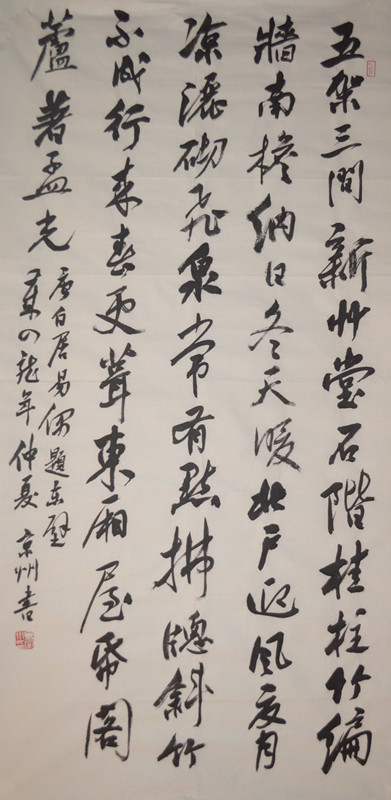 五架三間新艸堂石階桂柱竹編
牆南檐納日冬天暖北戶迎風夏月
涼灑砌飛泉常有點拂牕斜竹
不成行來春更葺東廂屋帋閣
蘆著孟光
唐白居易偶題東壁
龍年仲夏 京州書